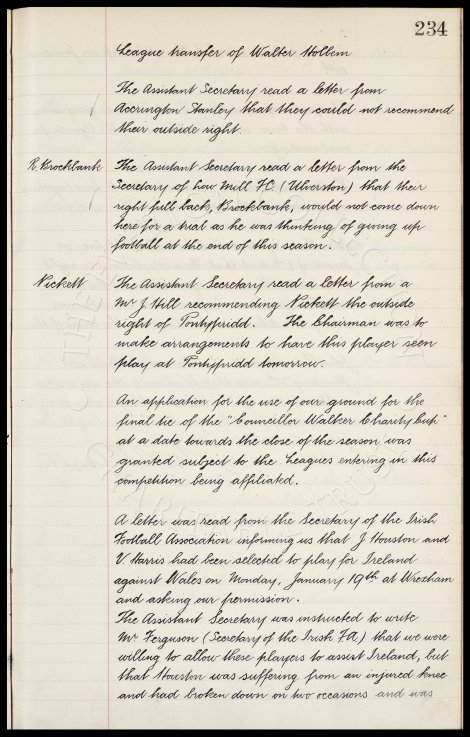 234
League transfer of Walter Holbem
The Assistant Secretary read a letter from
Accrington Stanley that they could not recommend
their outside right.
R. Brockbank
The Assistant Secretary read a letter from the
Secretary of Low Mill F.C. (Ulverston) that their
right full back, Brockbank, would not come down
here for a trial as he was thinking of giving up
football at the end of this season.
Nickett
The Assistant Secretary read a letter from a
Mr J. Hill recommending Nickett the outside
right of Pontypridd. The Chairman was to
make arrangements to have this player seen
play at Pontypridd tomorrow.
An application for the use of our ground for the
final tie of the "Councillor Walker Charity Cup"
at a date towards the close of the season was
granted subject to the Leagues entering in this
competition being affiliated.
A letter was read from the Secretary of the Irish
Football Association informing us that J Houston and
V. Harris had been selected to play for Ireland
against Wales on Monday, January 19th at Wrexham
and asking our permission.
The Assistant Secretary was instructed to write
Mr Ferguson (Secretary of the Irish F.A.) that we were
willing to allow these players to assist Ireland, but
that Houston was suffering from an injured knee
and had broken down on two occasions and was